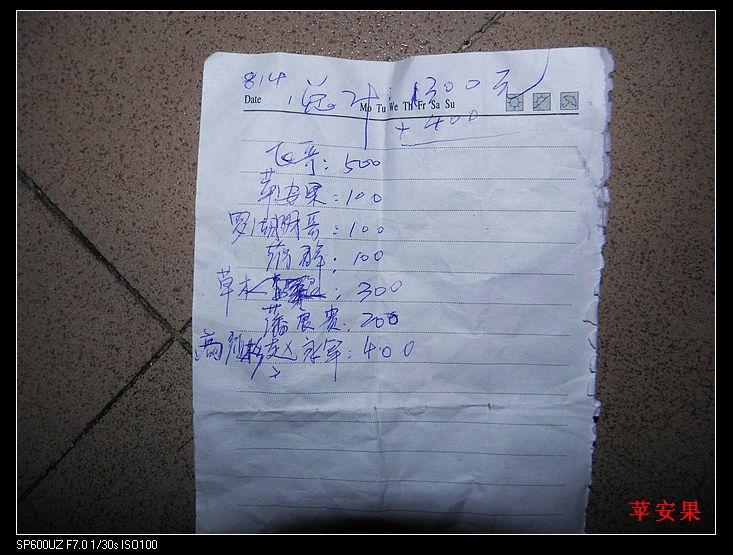 814 总计:1300元
Date Mo Tu We Th Fr Sa Su
+400
飞哥:500
苹安果:100
罗湖明哥:100
:100
草木:300
贵:200
高永军:400
苹安果
SP600UZ F7.0 1/30s ISO100